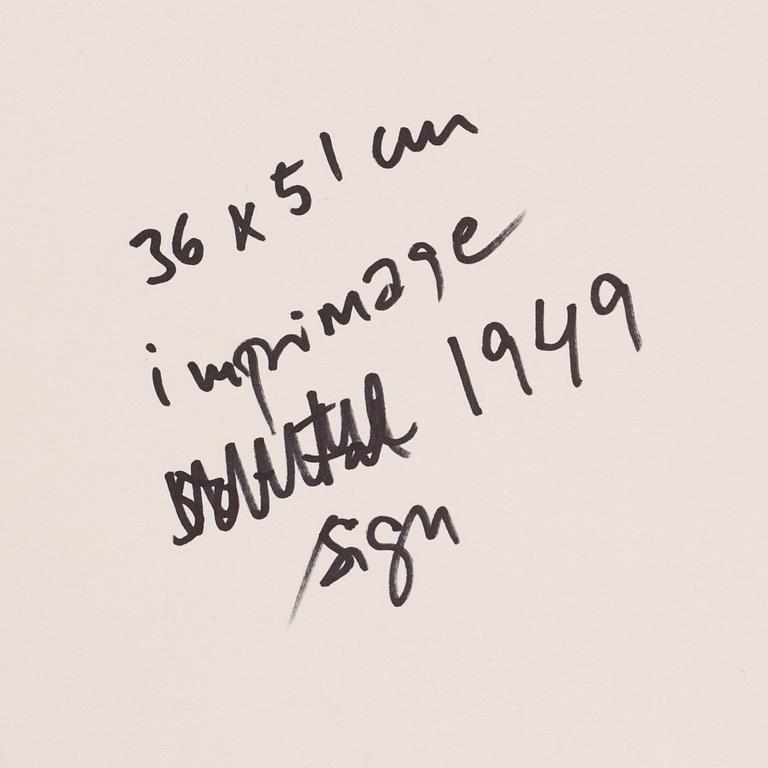 36 x 51 cm
imprimage
1949
sign